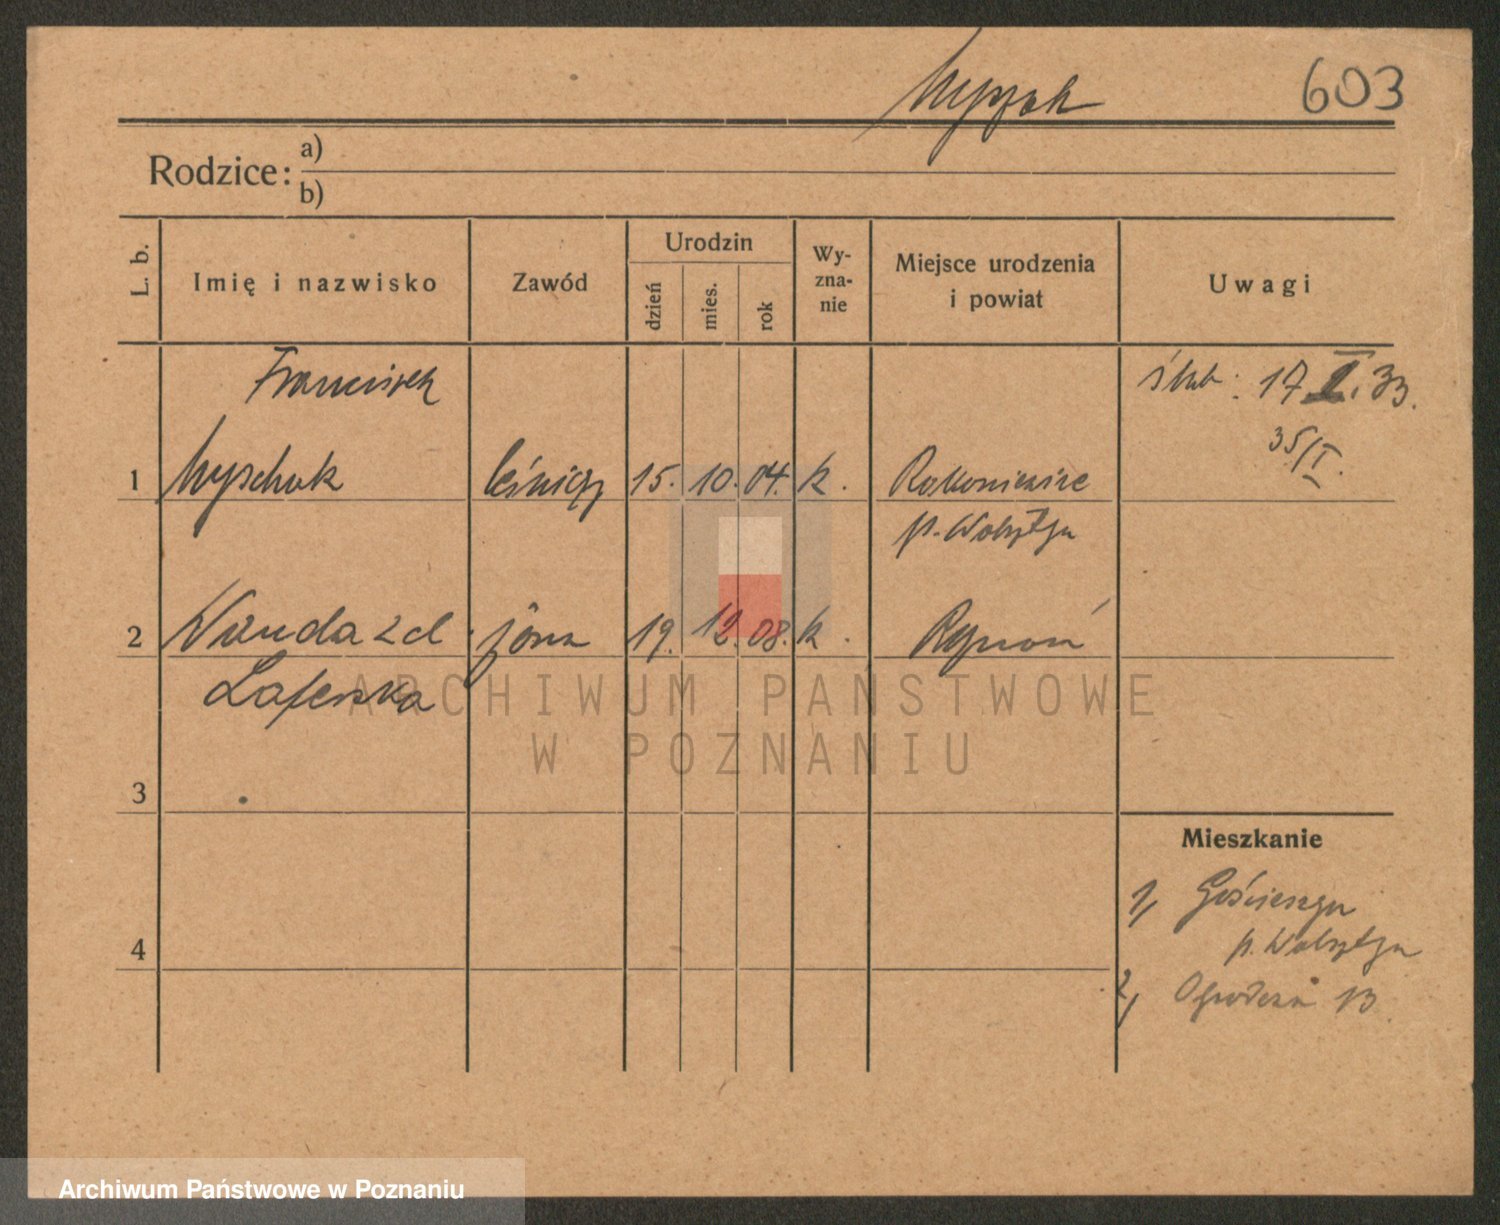 603
Rodzice: a)
b)
L. b.
Imię i nazwisko
Zawód
Urodzin
dzień
mies.
rok
Wy-
zna-
nie
Miejsce urodzenia
i powiat
Uwagi
Franciszek
ślub: 17 I. 33.
35/I.
1 leśniczy 15. 10. 04. k. Rakoniewice
p. Wolsztyn
2 Wanda z d. żona 19. 12. 08. k. Poznań
ARCHIWUM PAŃSTWOWE
W POZNANIU
3
Mieszkanie
1, Gościeszyn
p. Wolsztyn
4
2, Ogrodowa 13
Archiwum Państwowe w Poznaniu